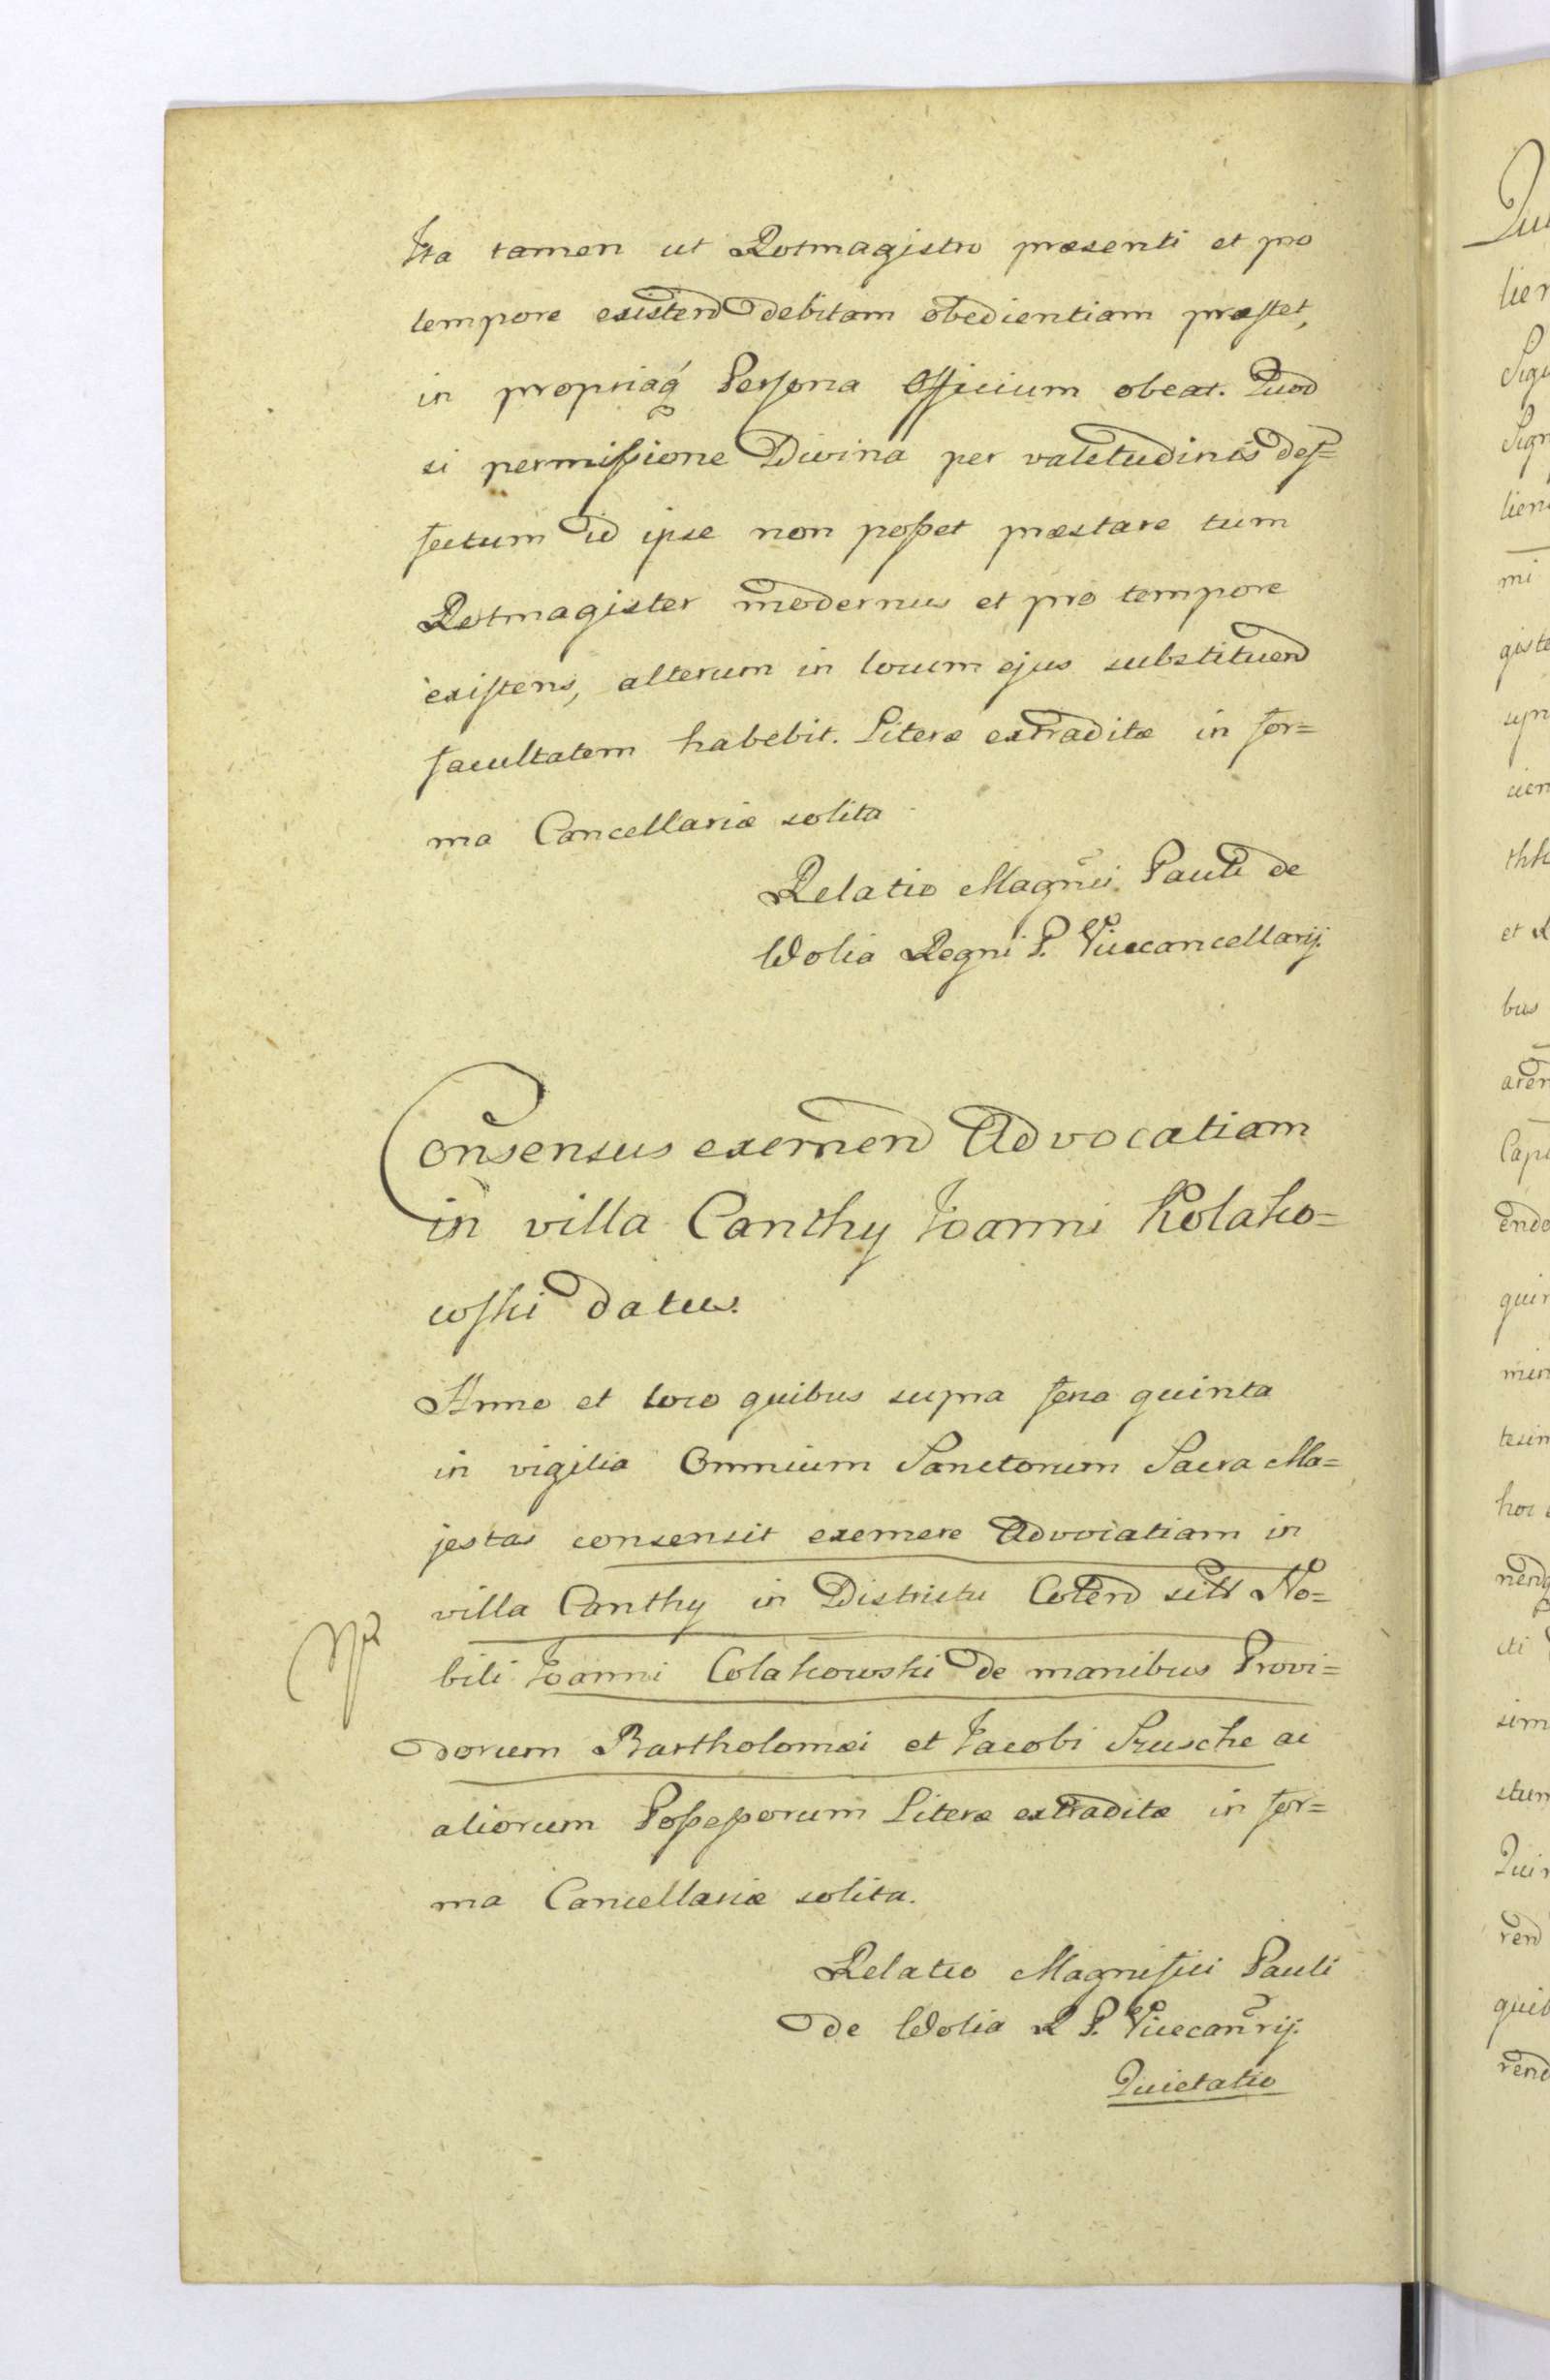 Ita tamen ut Rotmagistro præsenti et pro
tempore existend debitam obedientiam præstet,
in propriaq́ Persona Officium obeat. Quod
si permissione Divina per valetudinis def=
fectum id ipse non posset præstare tum
Rotmagister modernus et pro tempore
existens, alterum in locum ejus substituend
facultatem habebit. Literæ extraditæ in for=
ma Cancellariæ solita
Relatio Magnĩci Pauli de
Wolia Regni P. Vicecancellarij.
Consensus exemen̄d Advocatiam
in villa Canthy Joanni Kolako=
wski datus.
Anno et loco quibus supra feria quinta
in vigilia Omnium Sanctorum Sacra Ma=
jestas consensit exemere Advocatiam in
villa Canthy in Districtu Colen̄d sitt No=
bili Joanni Colakowski de manibus Provi=
dorum Bartholomæi et Jacobi Szusche ac
aliorum Possessorum Literæ extraditæ in for=
ma Cancellariæ solita.
Relatio Magnifici Pauli
de Wolia R P. Vicecan̄rij.
Quietatio